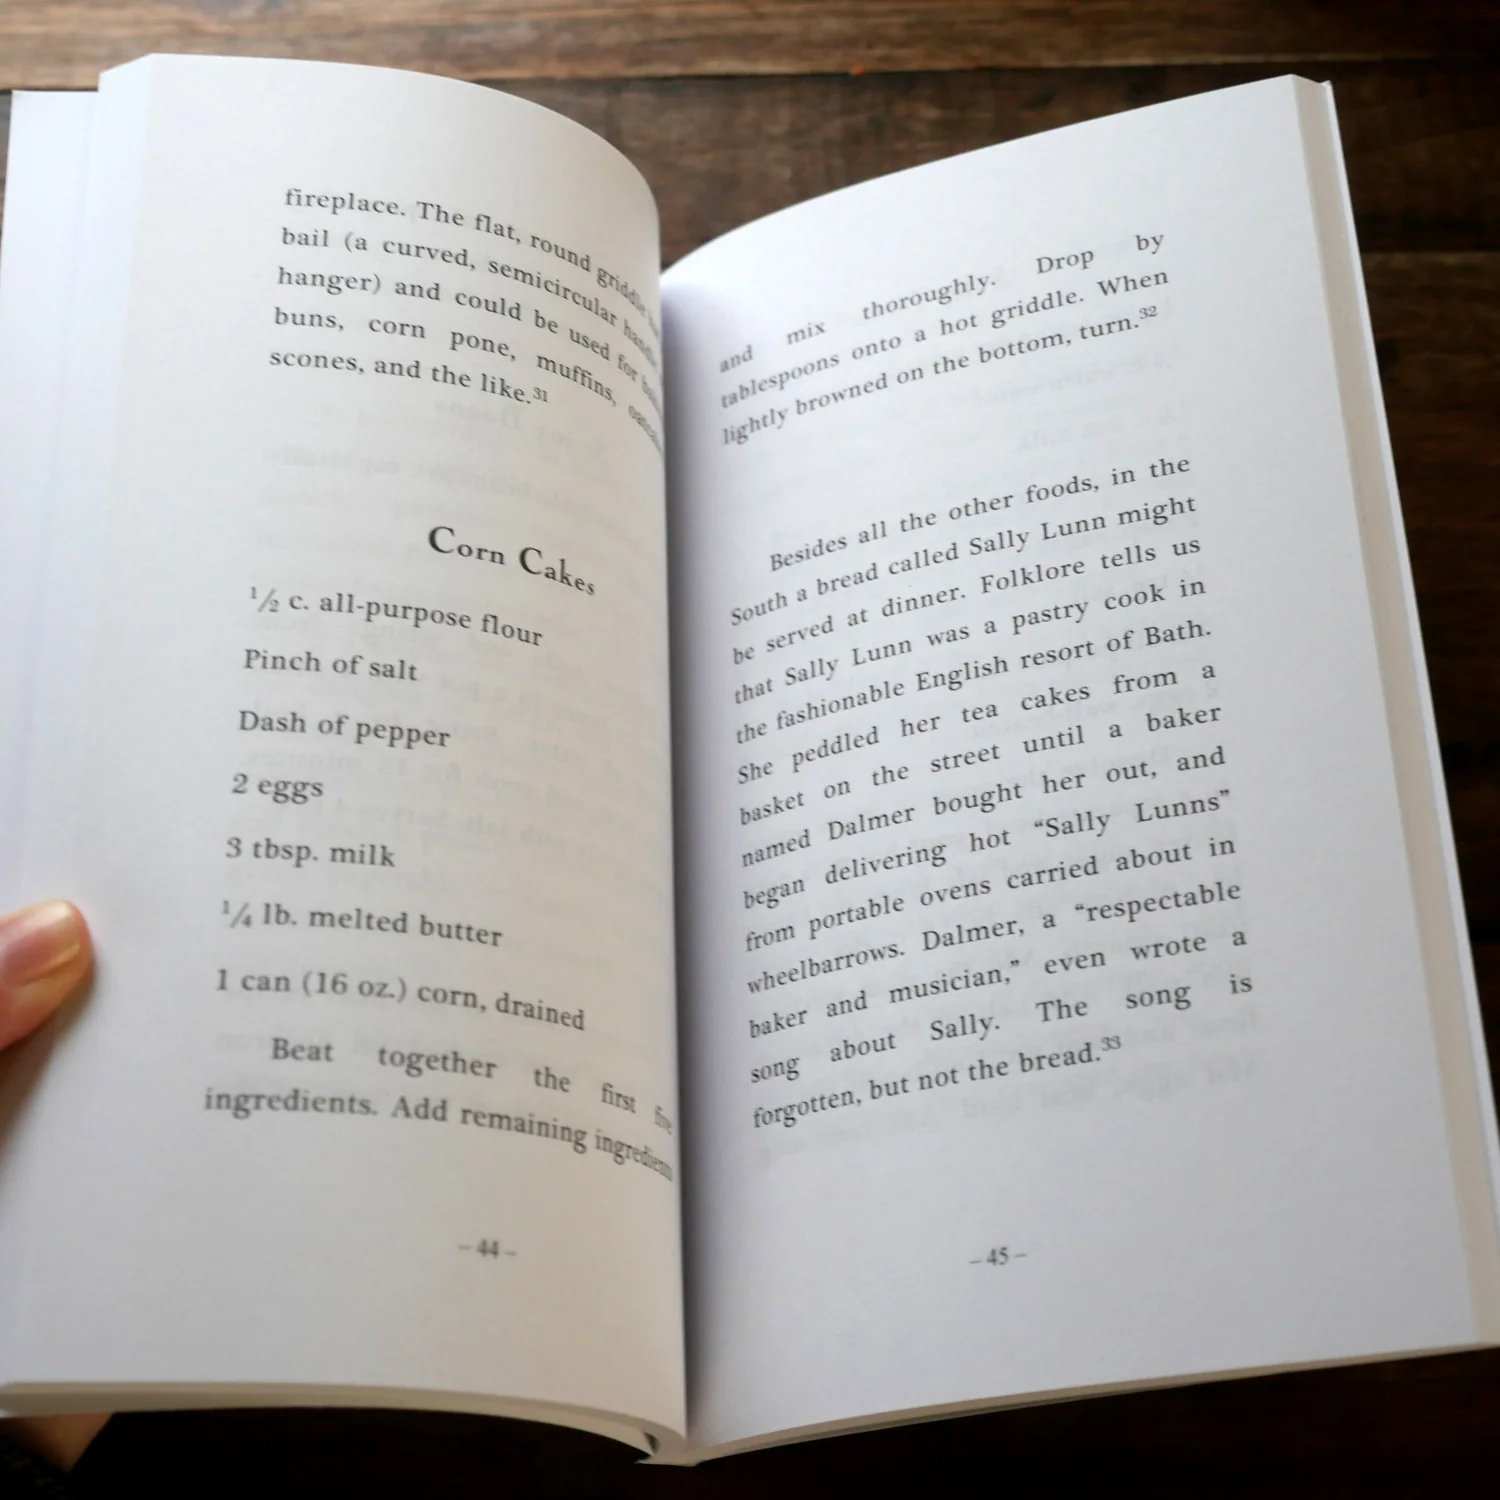 fireplace. The flat, round griddle
bail (a curved, semicircular handle
hanger) and could be used for
buns, corn pone, muffins,
scones, and the like.³¹
Corn Cakes
½ c. all-purpose flour
Pinch of salt
Dash of pepper
2 eggs
3 tbsp. milk
¼ lb. melted butter
1 can (16 oz.) corn, drained
Beat together the first five
ingredients. Add remaining ingredients
– 44 –
and mix thoroughly. Drop by
tablespoons onto a hot griddle. When
lightly browned on the bottom, turn.³²
Besides all the other foods, in the
South a bread called Sally Lunn might
be served at dinner. Folklore tells us
that Sally Lunn was a pastry cook in
the fashionable English resort of Bath.
She peddled her tea cakes from a
basket on the street until a baker
named Dalmer bought her out, and
began delivering hot “Sally Lunns”
from portable ovens carried about in
wheelbarrows. Dalmer, a “respectable
baker and musician,” even wrote a
song about Sally. The song is
forgotten, but not the bread.³³
– 45 –